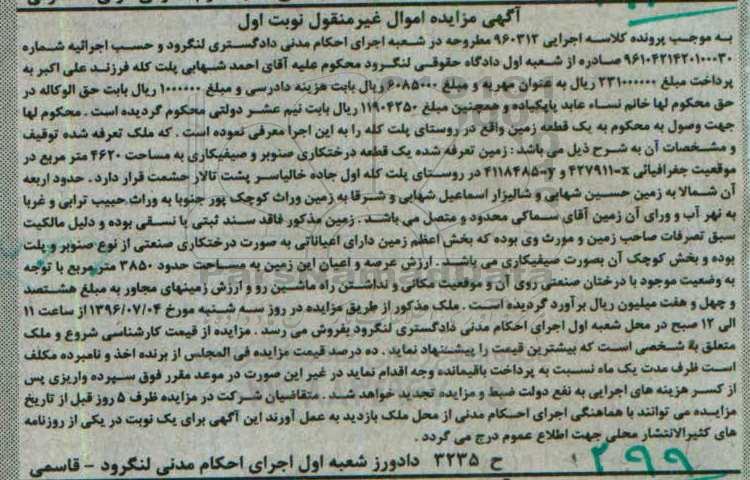 آگهی مزایده اموال غیرمنقول نوبت اول
به موجب پرونده کلاسه اجرایی ۹۶۰۳۱۲ مطروحه در شعبه اجرای احکام مدنی دادگستری لنگرود و حسب اجرائیه شماره
۹۶۱۰۴۲۱۴۲۰۱۰۰۰۳۰ صادره از شعبه اول دادگاه حقوقی لنگرود محکوم علیه آقای احمد شهابی پلت کله فرزند علی اکبر به
پرداخت مبلغ ۲۳۱۰۰۰۰۰۰ ریال به عنوان مهریه و مبلغ ۶۰۸۵۰۰۰ ریال بابت هزینه دادرسی و مبلغ ۱۰۰۰۰۰۰ ریال بابت حق الوکاله در
حق محکوم لها خانم نساء عابد پاپکیاده و همچنین مبلغ ۱۱۹۰۴۲۵۰ ریال بابت نیم عشر دولتی محکوم گردیده است . محکوم لها
جهت وصول به محکوم به یک قطعه زمین واقع در روستای پلت کله را به این اجرا معرفی نموده است . که ملک تعرفه شده توقیف
و مشخصات آن به شرح ذیل می باشد : زمین تعرفه شده یک قطعه درختکاری صنوبر و صیفیکاری به مساحت ۴۶۲۰ متر مربع در
موقعیت جغرافیائی x-۴۲۷۹۱۱ و y-۴۱۱۸۴۸۵ در روستای پلت کله اول جاده خالیاسر پشت تالار حشمت قرار دارد . حدود اربعه
آن شمالا به زمین حسین شهابی و شالیزار اسماعیل شهابی و شرقا به زمین وراث کوچک پور جنوبا به وراث حبیب ترابی و غربا
به نهر آب و ورای آن زمین آقای سماکی محدود و متصل می باشد . زمین مذکور فاقد سند ثبتی یا نسقی بوده و دلیل مالکیت
سبق تصرفات صاحب زمین و مورث وی بوده که بخش اعظم زمین دارای اعیاناتی به صورت درختکاری صنعتی از نوع صنوبر و پلت
بوده و بخش کوچک آن بصورت صیفیکاری می باشد . ارزش عرصه و اعیان این زمین به مساحت حدود ۳۸۵۰ متر مربع با توجه
به وضعیت موجود با درختان صنعتی روی آن و موقعیت مکانی و نداشتن راه ماشین رو و ارزش زمینهای مجاور به مبلغ هشتصد
و چهل و هفت میلیون ریال برآورد گردیده است . ملک مذکور از طریق مزایده در روز سه شنبه مورخ ۱۳۹۶/۰۷/۰۴ از ساعت ۱۱
الی ۱۲ صبح در محل شعبه اول اجرای احکام مدنی دادگستری لنگرود بفروش می رسد . مزایده از قیمت کارشناسی شروع و ملک
متعلق به شخصی است که بیشترین قیمت را پیشنهاد نماید . ده درصد قیمت مزایده فی المجلس از برنده اخذ و نامبرده مکلف
است ظرف مدت یک ماه نسبت به پرداخت باقیمانده وجه اقدام نماید در غیر این صورت در موعد مقرر فوق سپرده واریزی پس
از کسر هزینه های اجرایی به نفع دولت ضبط و مزایده تجدید خواهد شد . متقاضیان شرکت در مزایده ظرف ۵ روز قبل از تاریخ
مزایده می توانند با هماهنگی اجرای احکام مدنی از محل ملک بازدید به عمل آورند این آگهی برای یک نوبت در یکی از روزنامه
های کثیرالانتشار محلی جهت اطلاع عموم درج می گردد .
ح ۳۲۳۵ دادورز شعبه اول اجرای احکام مدنی لنگرود - قاسمی
۲۹۹
ParsNamadData